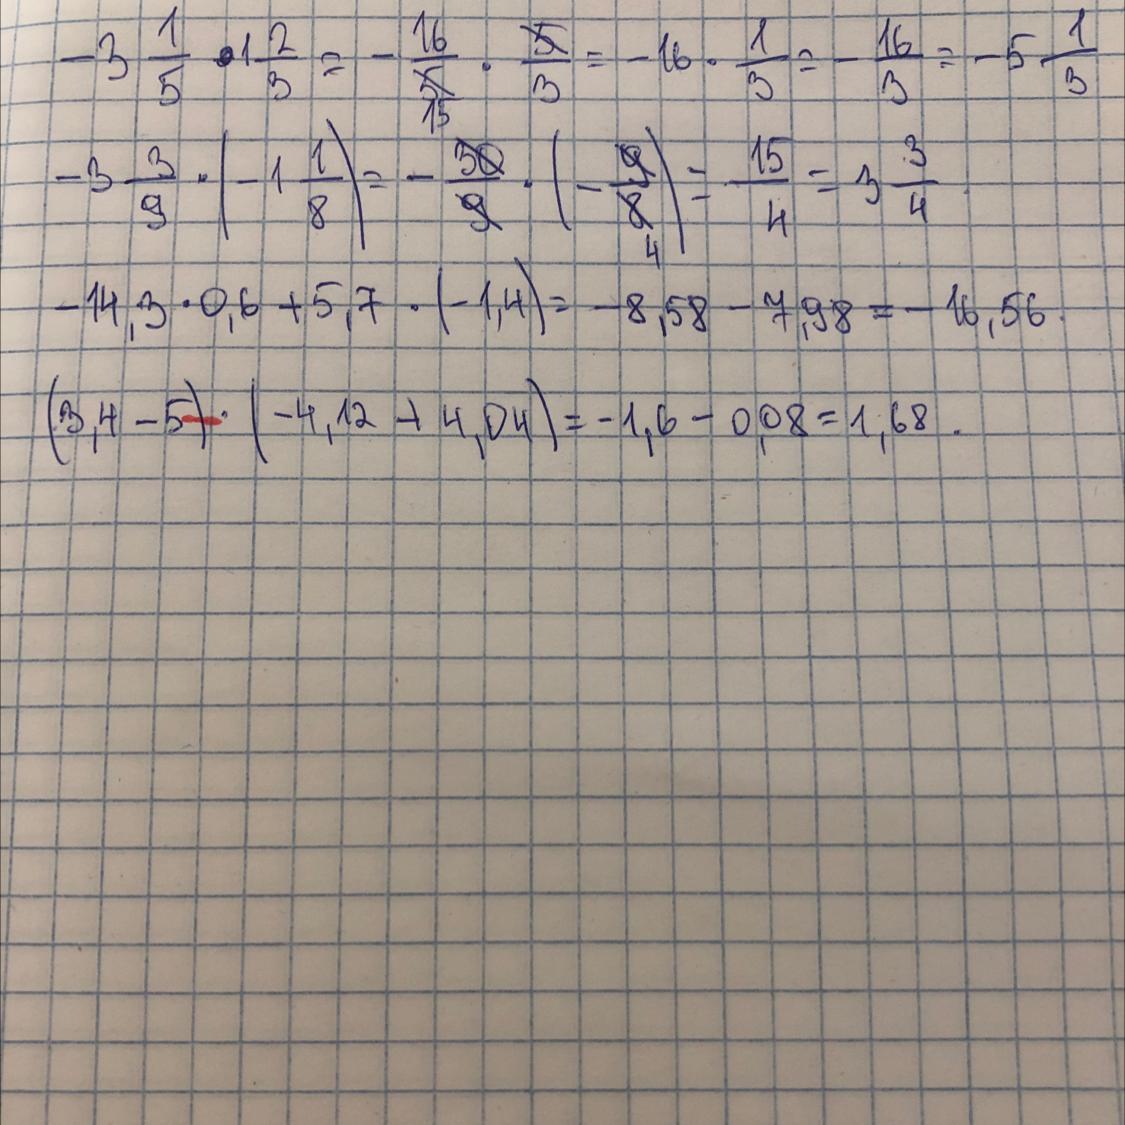 -3 1/5 · 1 2/3 = - 16/5 · 5/3 = -16 · 1/3 = - 16/3 = -5 1/3
15
-3 3/9 · (-1 1/8) = - 30/9 · (- 9/8) = 15/4 = 3 3/4
4
-14,3 · 0,6 + 5,7 · (-1,4) = -8,58 - 7,98 = -16,56.
(3,4 - 5) · (-4,12 + 4,04) = -1,6 - 0,08 = 1,68.